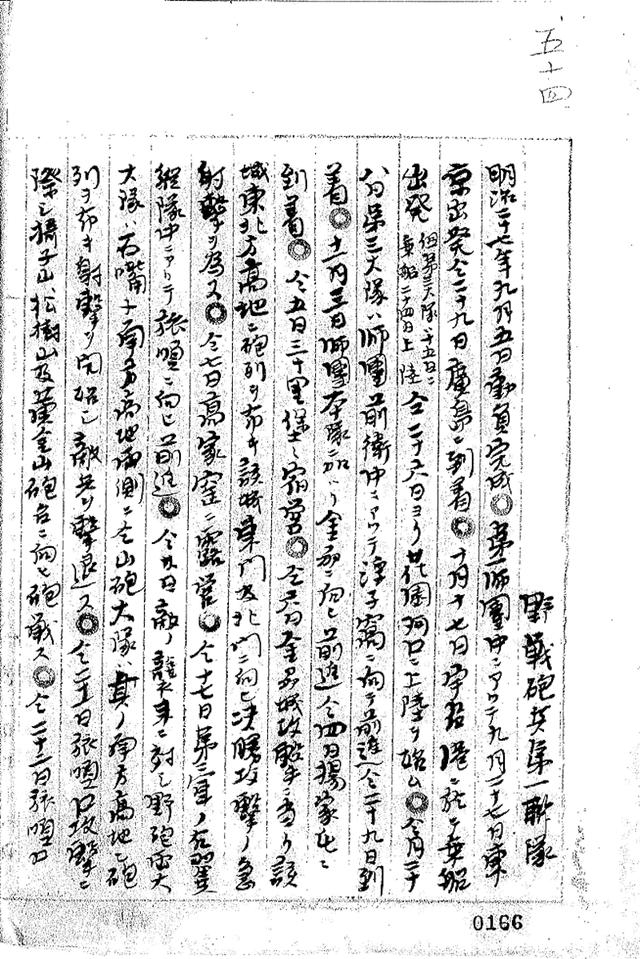 五十四
野戰砲兵第一聯隊
明治二十七年九月五日動員完成◎第一師團中ニアリテ九月二十七日東
京出発仝二十九日廣島ニ到着◎十月十七日宇品港ニ於テ乗船
出発 但第三大隊ハ十五日ニ
乗船二十四日上陸 仝二十六日ヨリ花園河口ニ上陸ヲ始ム◎仝月二十
八日第三大隊ハ師團前衛中ニアリテ 子窩ニ向テ前進仝二十九日到
着◎十一月三日師團本隊ニ加ハリ金州ニ向ヒ前進仝四日 家屯ニ
到着◎仝五日三十里堡ニ宿営◎仝六日金州城攻撃ニ当リ該
城東北方高地ニ砲列ヲ布キ該城東門及北門ニ向ヒ決勝攻撃ノ急
射撃ヲ為ス◎仝七日高家窑ニ露営◎仝十七日第二軍ノ右翼
縦隊中ニアリテ旅順ニ向ヒ前進◎仝 日敵ノ襲来ニ対シ野砲 大
大隊ハ石嘴子南方高地 側ニ仝山砲大隊ハ其ノ南方高地ニ砲
列ヲ布キ射撃ヲ開始シ敵兵ヲ撃退ス◎仝二十一日旅順口攻撃ニ
際シ猗子山、松樹山及黄金山砲台ニ向ヒ砲戦ス◎仝二十二日旅順口
0166